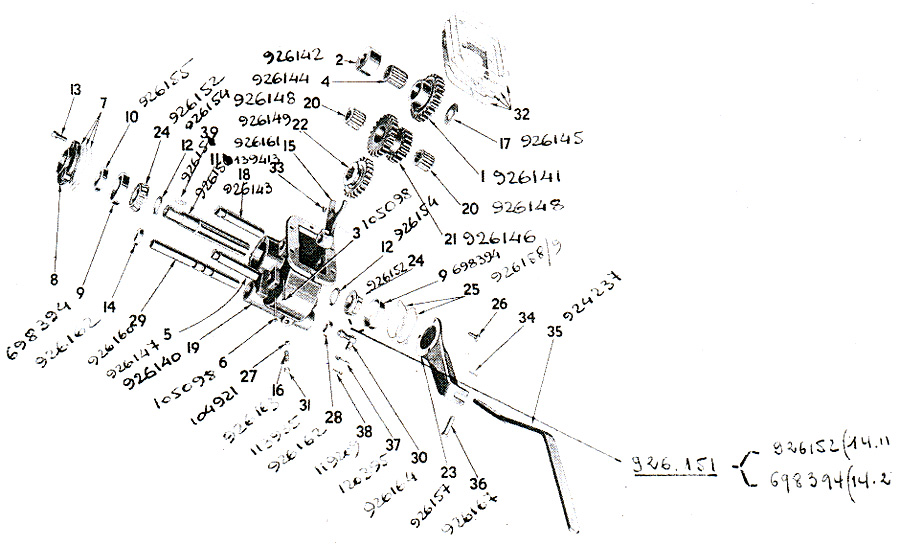 926142 2
926144 4
926148 20
926149 22
926161 15
139413 33
18
926143
13
7
10 926155
24 926152
12 926154
39
11
32
17 926145
1 926141
20 926148
21 926146
3 105098
12 926154
926152 24
9 698394
25 926158/9
26
34
35 924237
8
9 698394
14 926162
29
5 926147
19 926140
6 105098
27 104921
16 926163
31
28 926162
38
37
30 926164
23 926157
36
926.151
926152(14.11
698394(14.2